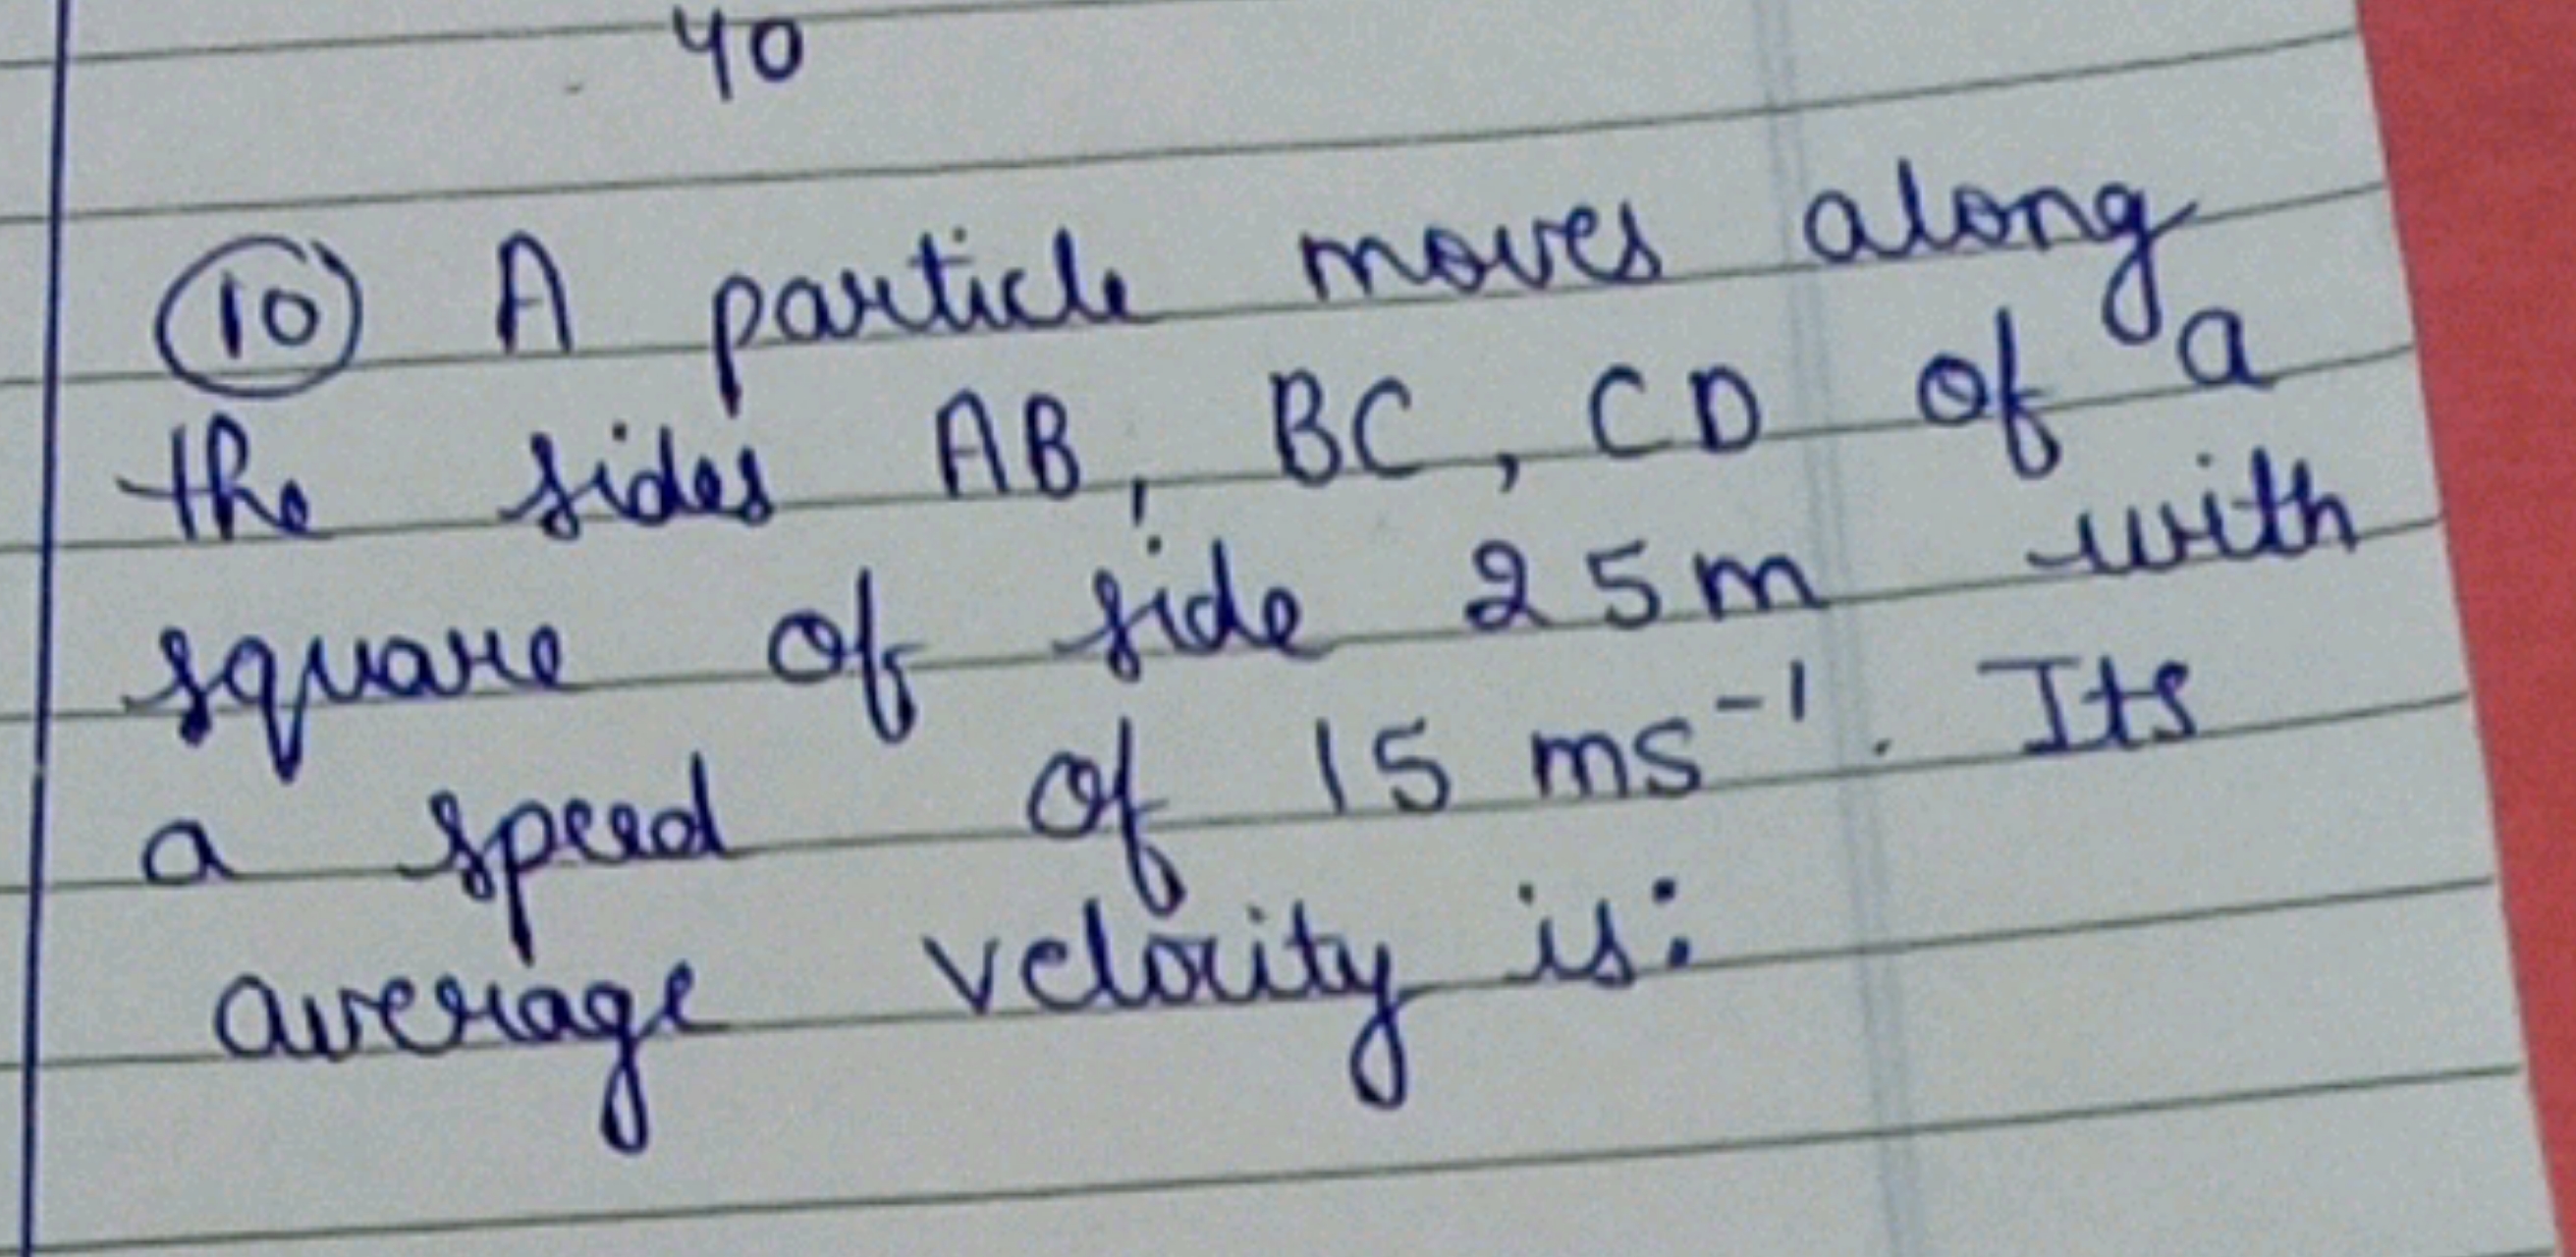 40
(10) A particle moves along
the sides AB, BC, CD of a
square of side 25m with
a speed of 15 ms⁻¹. Its
average velocity is: